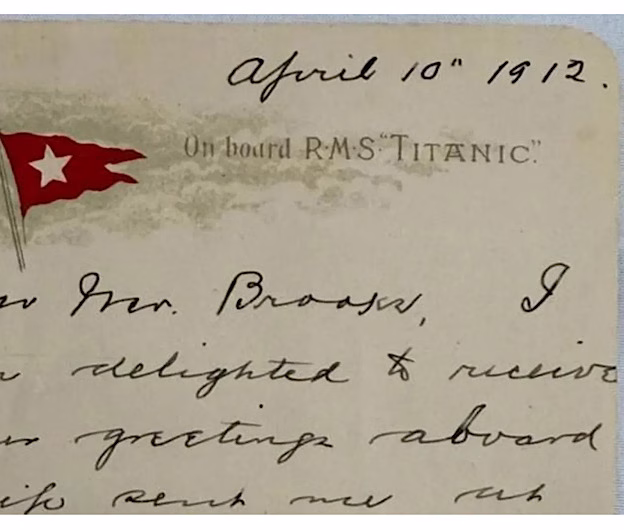 April 10" 1912.
On board R·M·S "TITANIC".
Mr. Brooks, I
delighted to receive
greetings aboard
sent me at